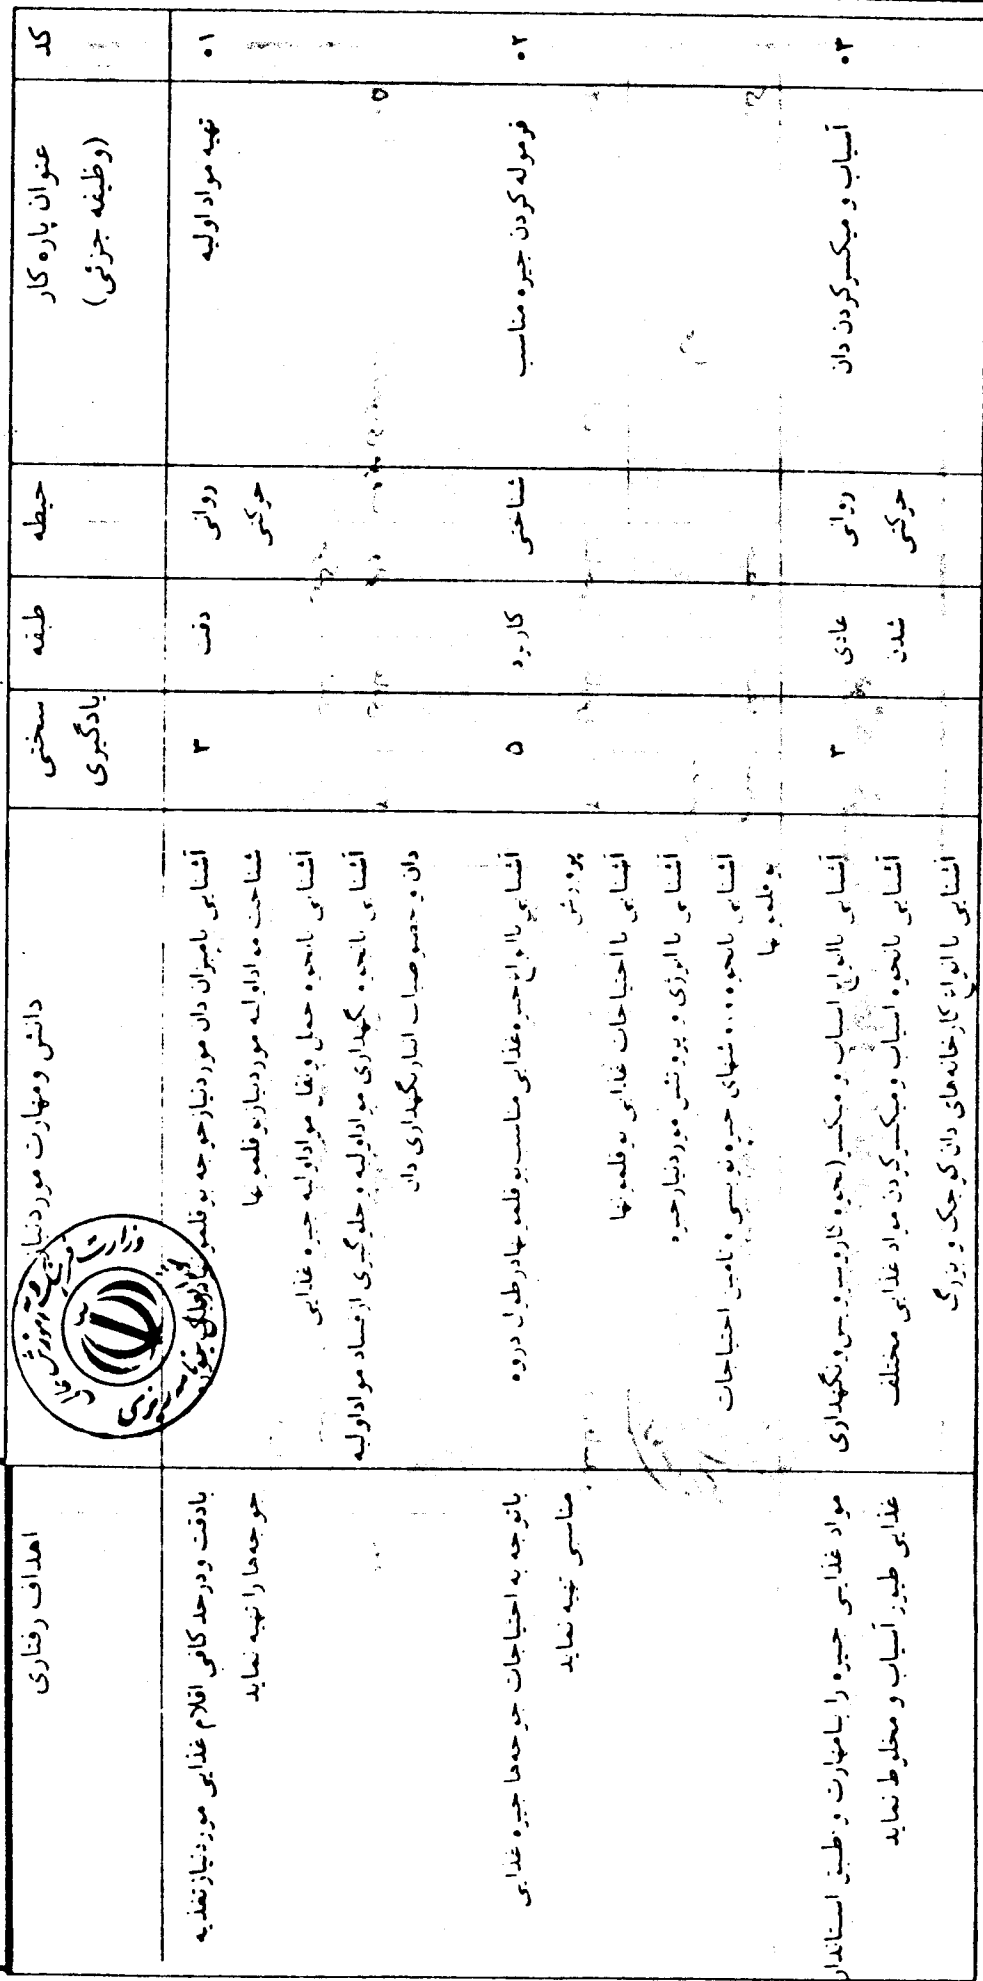 کد
عنوان پاره کار
(وظیفه جزئی)
حیطه
طبقه
سختی
یادگیری
دانش و مهارت مورد نیاز
اهداف رفتاری
۰۱
تهیه مواد اولیه
روانی
حرکتی
دقت
۳
آشنایی با میزان دان مورد نیاز جوجه بوقلمون
شناخت مواد اولیه مورد نیاز بوقلمونها
آشنایی با نحوه حمل و نقل مواد اولیه جیره غذایی
آشنایی با نحوه نگهداری مواد اولیه و جلوگیری از فساد مواد اولیه
دان و خصوصیات انبار نگهداری دان
با دقت و در حد کافی اقلام غذایی مورد نیاز تغذیه
جوجه‌ها را تهیه نماید
۰۲
فرموله کردن جیره مناسب
شناختی
کاربرد
۵
آشنایی با انواع جیره غذایی مناسب بوقلمونها در طول دروه
پرورش
آشنایی با احتیاجات غذایی بوقلمونها
آشنایی با انرژی و پروتئین مورد نیاز جیره
آشنایی با نحوه جیره نویسی و تامین احتیاجات
بوقلمونها
با توجه به احتیاجات جوجه‌ها جیره غذایی
مناسبی تهیه نماید
۰۳
آسیاب و میکسر کردن دان
روانی
حرکتی
عادی
شدن
۳
آشنایی با انواع آسیاب و میکسر (نحوه کار و سرویس و نگهداری
آشنایی با نحوه آسیاب و میکسر کردن مواد غذایی مختلف
آشنایی با انواع کارخانه‌های دان کوچک و بزرگ
مواد غذایی جیره را با مهارت و طبق استاندار
غذایی طیور آسیاب و مخلوط نماید